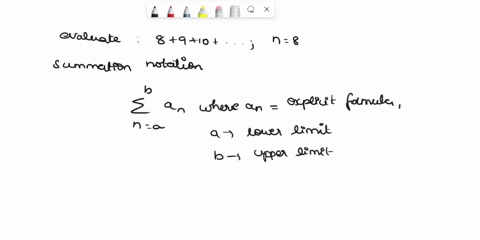 evaluate : 8+9+10+ . . . . ; n=8
summation notation
b
∑ aₙ where aₙ = explicit formula,
n=a
a → lower limit
b → upper limit